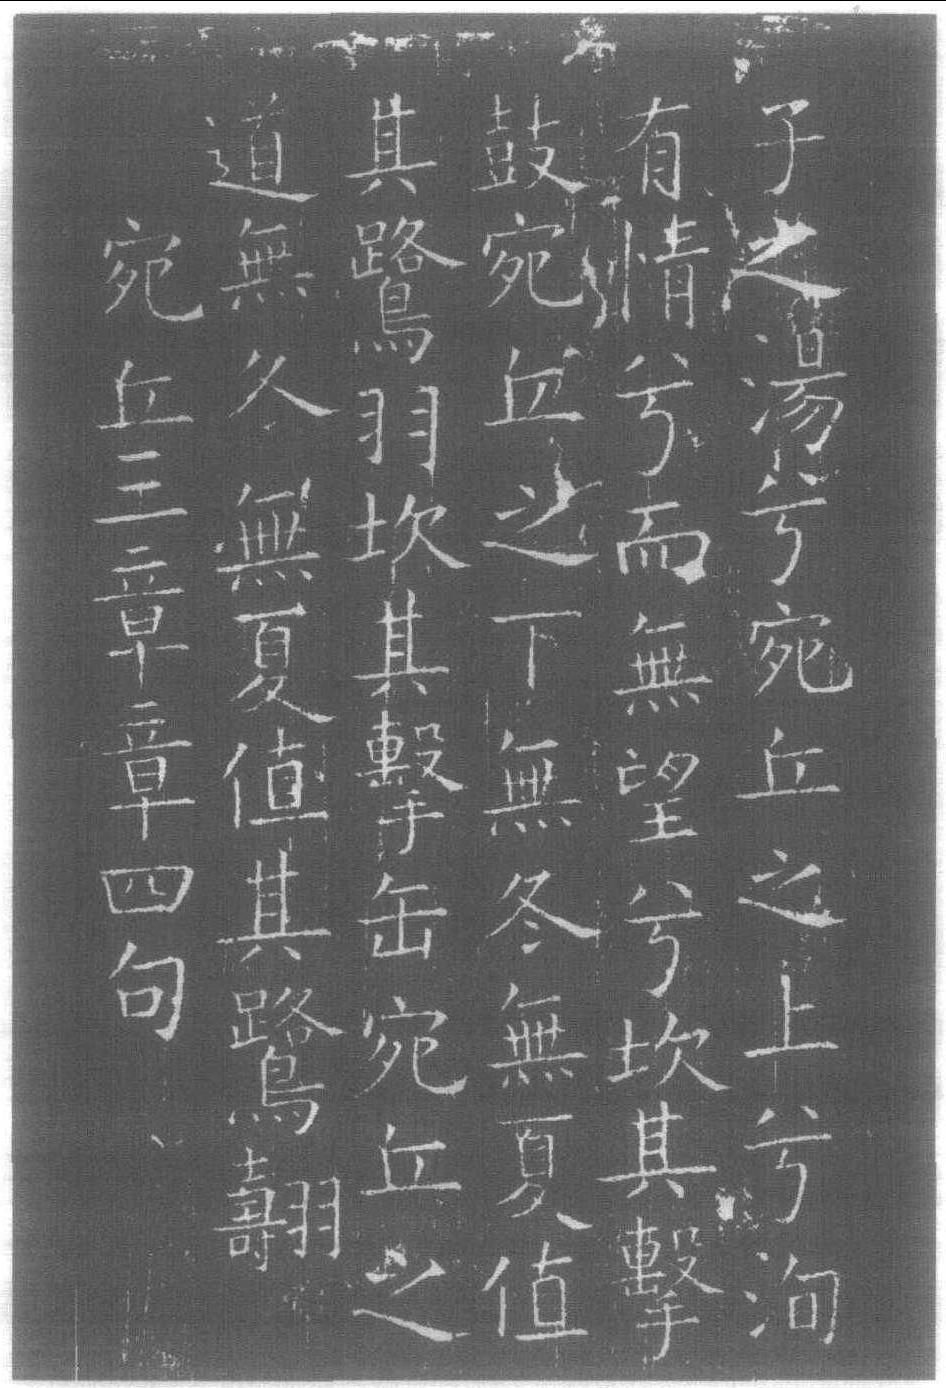 子之湯兮宛丘之上兮洵
有情兮而無望兮坎其擊
鼓宛丘之下無冬無夏值
其鷺羽坎其擊缶宛丘之
道無冬無夏值其鷺翿
宛丘三章章四句